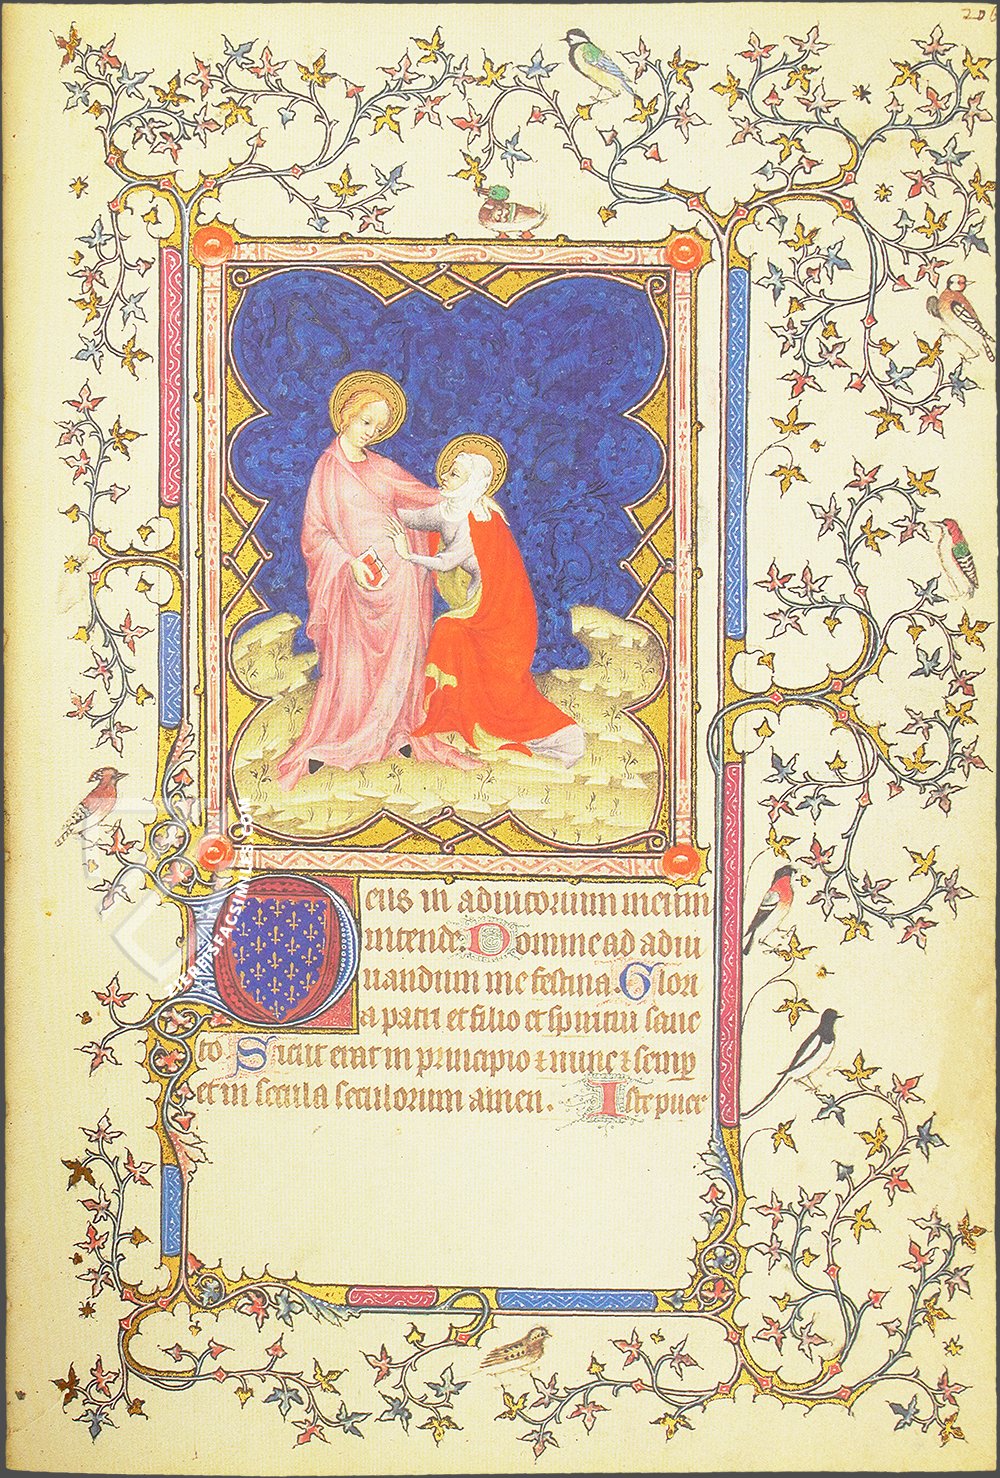 206
Deus in adiutorium meum
intende. Domine ad adiu
uandum me festina. Glori
a patri et filio et spiritui sanc
to. Sicut erat in principio et nunc et semp
et in secula seculorum amen. Iste puer
FACSIMILES.COM